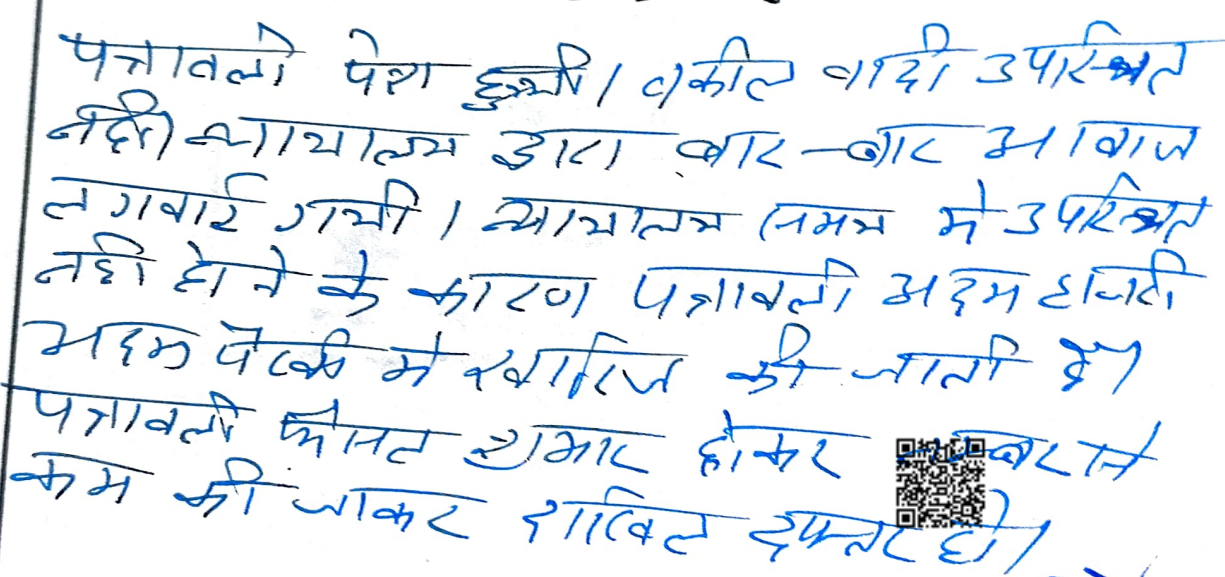 पत्रावली पेश हुयी। वकील वादी उपस्थित
नही। न्यायालय द्वारा बार-बार आवाज
लगवाई गयी। न्यायालय समय मे उपस्थित
नही होने के कारण पत्रावली अदम हाजरी
अदम पैरवी मे खारिज की जाती है।
पत्रावली फैसल शुमार होकर नम्बर से
कम की जाकर दाखिल दफ्तर हो।